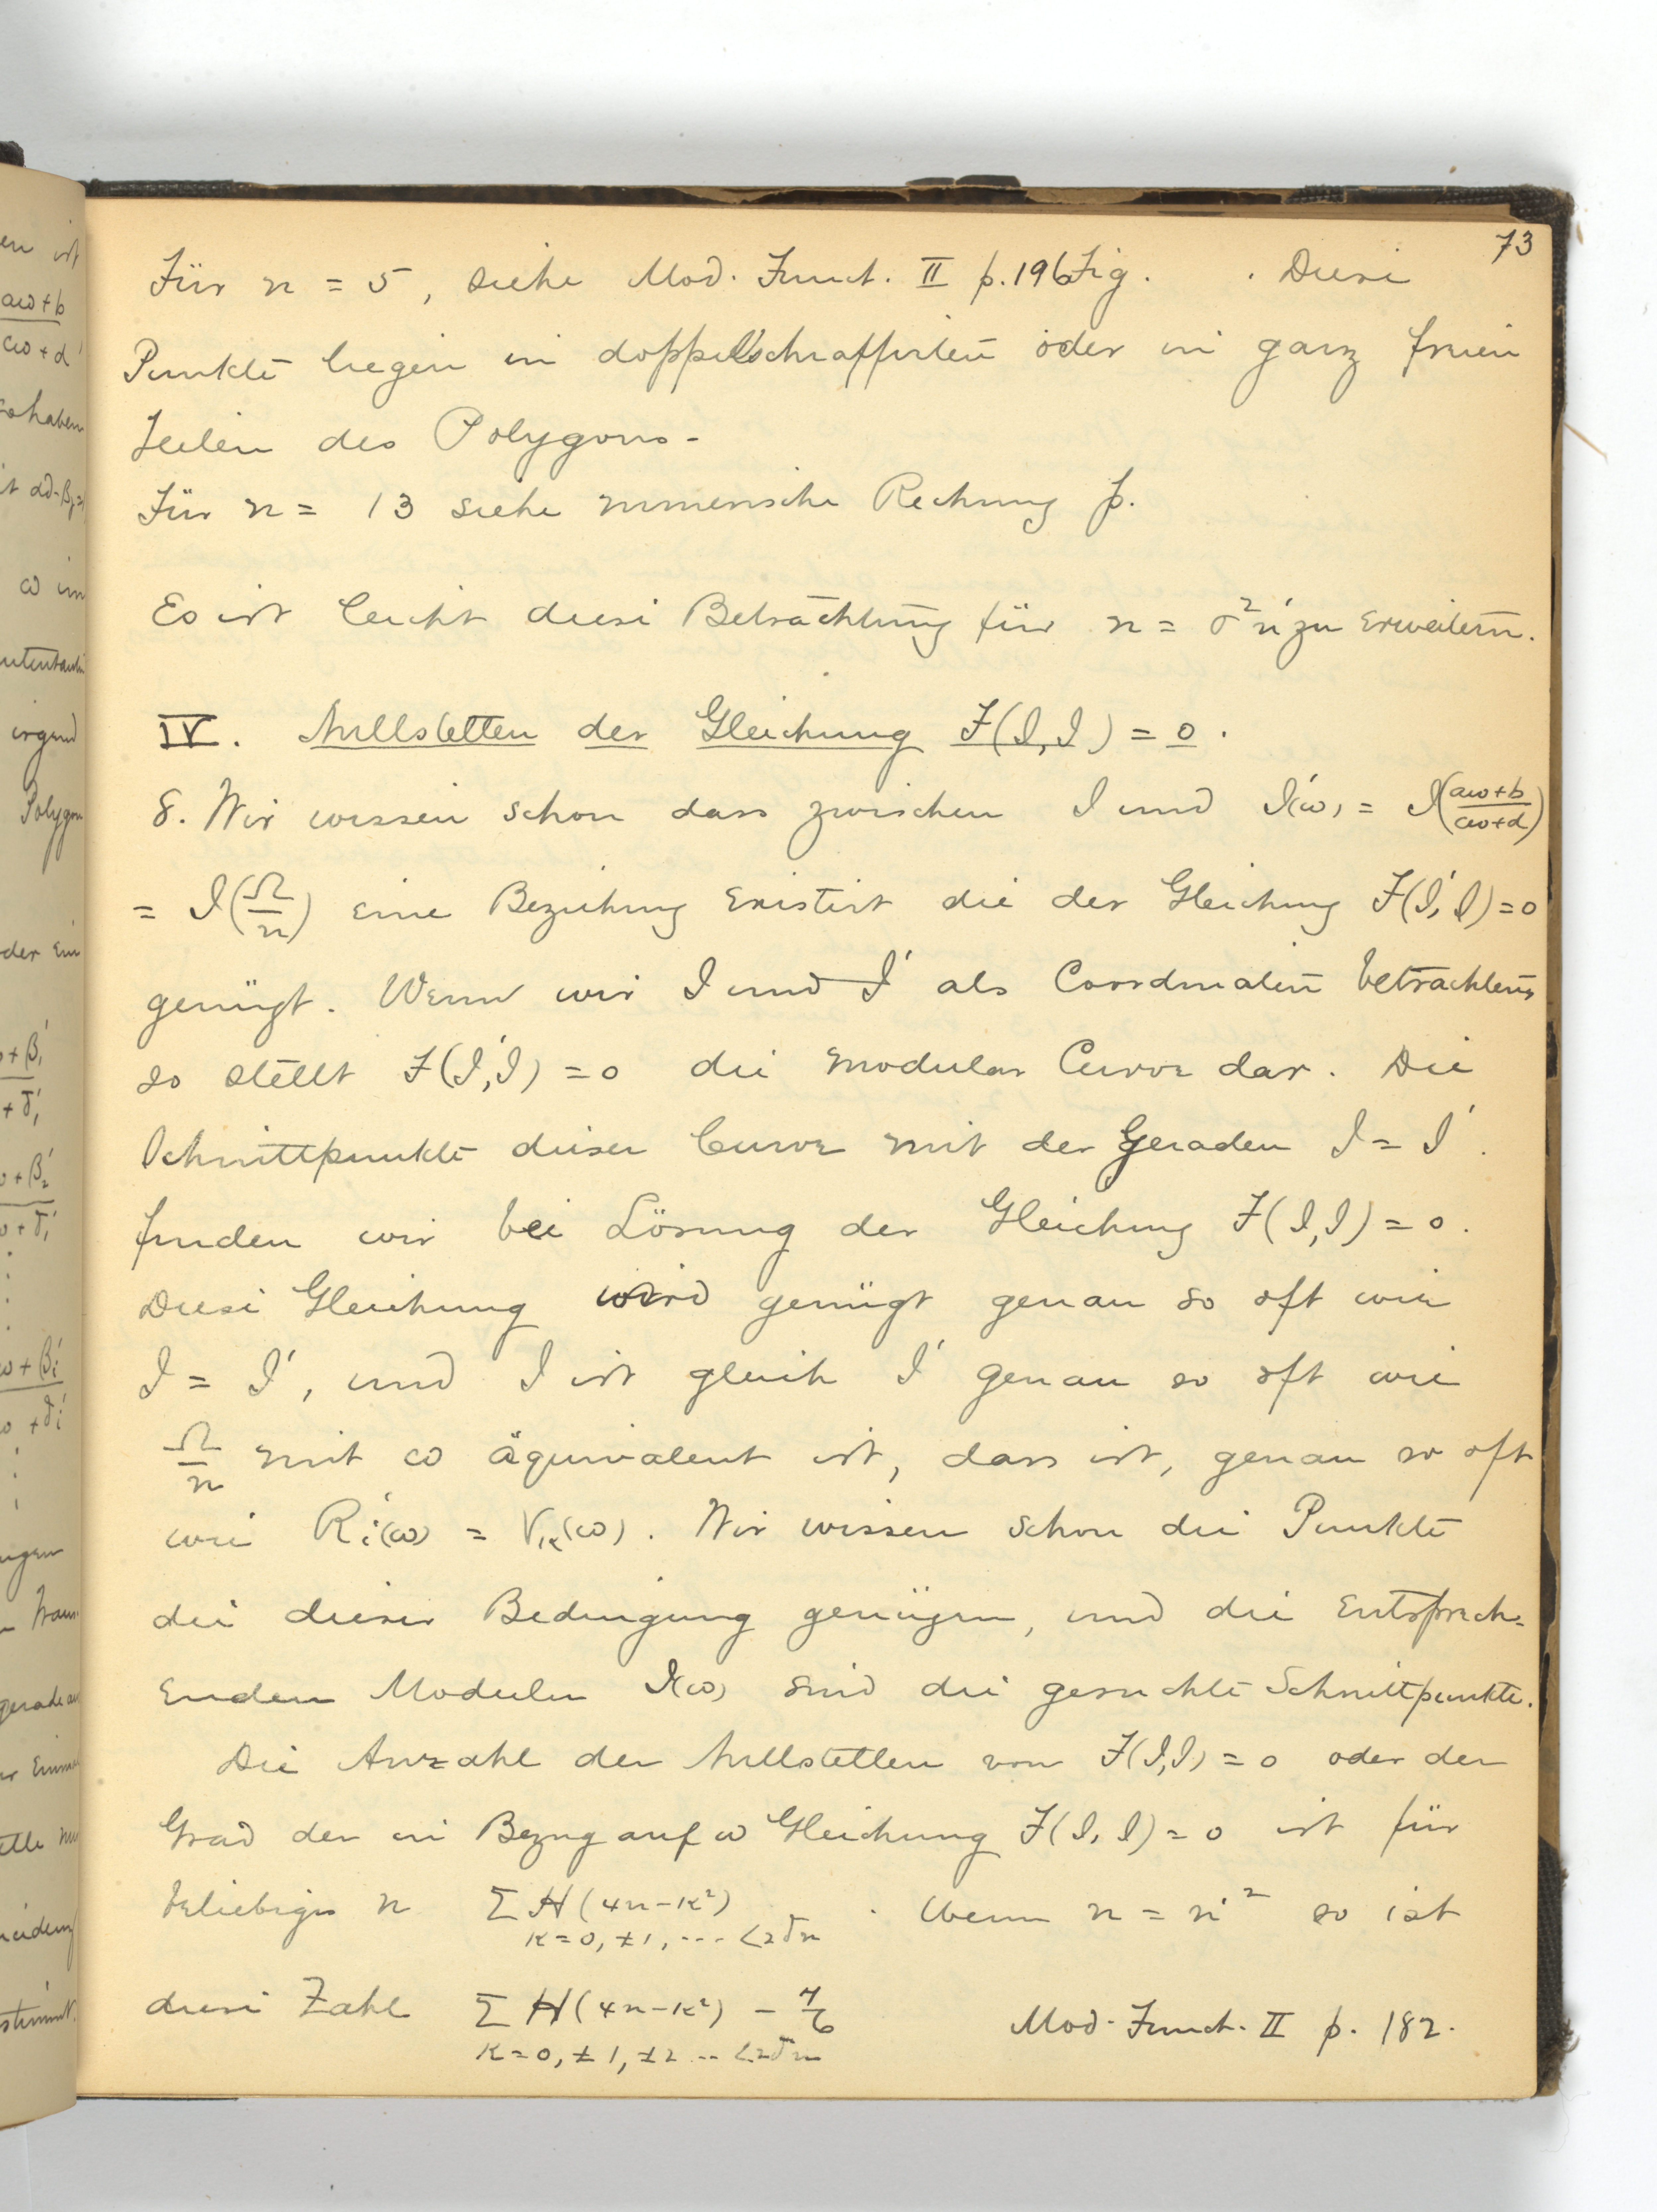 73
Für n = 5, siehe Mod. Funct. II p. 196 Fig. . Diese
Punkte liegen in doppeltschraffirten oder in ganz freien
Teilen des Polygons.
Für n = 13 siehe numerische Rechnung p.
Es ist leicht diese Betrachtung für n = σ²n' zu erweitern.
IV. Nullstellen der Gleichung F(I, I) = 0.
8. Wir wissen schon dass zwischen I und I'(ω) = I((aω+b)/(cω+d))
= I(Ω/n) eine Beziehung existirt die der Gleichung F(I', I) = 0
genügt. Wenn wir I und I' als Coordinaten betrachten,
so stellt F(I', I) = 0 die modular Curve dar. Die
Schnittpunkte dieser Curve mit der Geraden I = I'.
finden wir bei Lösung der Gleichung F(I, I) = 0.
Diese Gleichung wird genügt genau so oft wie
I = I', und I ist gleich I' genau so oft wie
Ω/n mit ω äquivalent ist, dass ist, genau so oft
wie R'i(ω) = Vκ(ω). Wir wissen schon die Punkte
die dieser Bedingung genügen, und die Entsprech-
enden Moduln I(ω) sind die gesuchte Schnittpunkte.
Die Anzahl der Nullstellen von F(I, I) = 0 oder der
Grad der in Bezug auf ω Gleichung F(I, I) = 0 ist für
beliebiges n Σ H(4n-κ²) . Wenn n = n'² so ist
κ = 0, ±1, ... <2√n
diese Zahl Σ H(4n-κ²) - 7/6 Mod. Funct. II p. 182.
κ = 0, ±1, ±2 ... <2√n